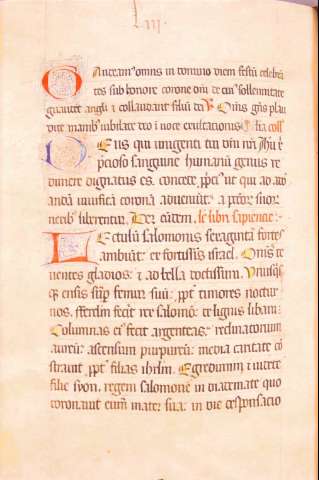 LIII.
Gaudeamus omnis in domino diem festū celebrā
tes sub honore corone dn̄i de cuī sollemnitate
gaudēt angli et collaudant filiū dei V Om̄s gn̄s plau
dite manib; iubilate deo ī uoce exultationis Or̄a coll
Deus qui unigenti tui dn̄i nr̄i Jhū x̄
precioso sanguine humanū genus re
dimere dignatus es. concede ppici us ut qui ad ado
randā uiuificā coronā adueniūt. a pctōr; suor;
nexib; liberentur. Per eūdem. le libri sapienciē.
Lectulū salomonis seraginta fortes
ambiūt. ex fortissīs israel. Om̄s te
nentes gladios. et ad bella doctissimi. Uniusc;
q; ensis sup femur suū. ppt timores noctur
nos. fferclm fecit rex salomō. de lignis libani.
Columnas ei fecit argenteas. reclinatorium
aureū. ascensum purpureū. media caritate cō
strauit ppt filias ihrlm. Egredimini et uidete
filie syon. regem salomonē in diademate quo
coronauit eum mater sua. in die desponsacio